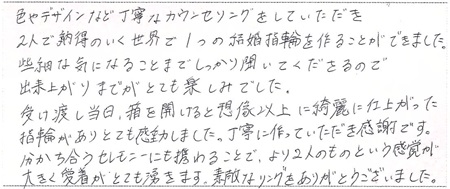 色やデザインなど丁寧なカウンセリングをしていただき
2人で納得のいく世界で1つの結婚指輪を作ることができました。
些細な気になることまでしっかり聞いてくださるので
出来上がりまでがとても楽しみでした。
受け渡し当日、箱を開けると想像以上に綺麗に仕上がった
指輪がありとても感動しました。丁寧に作っていただき感謝です。
分かち合うセレモニーにも携わることで、より2人のものという感覚が
大きく愛着がとても湧きます。素敵なリングをありがとうございました。